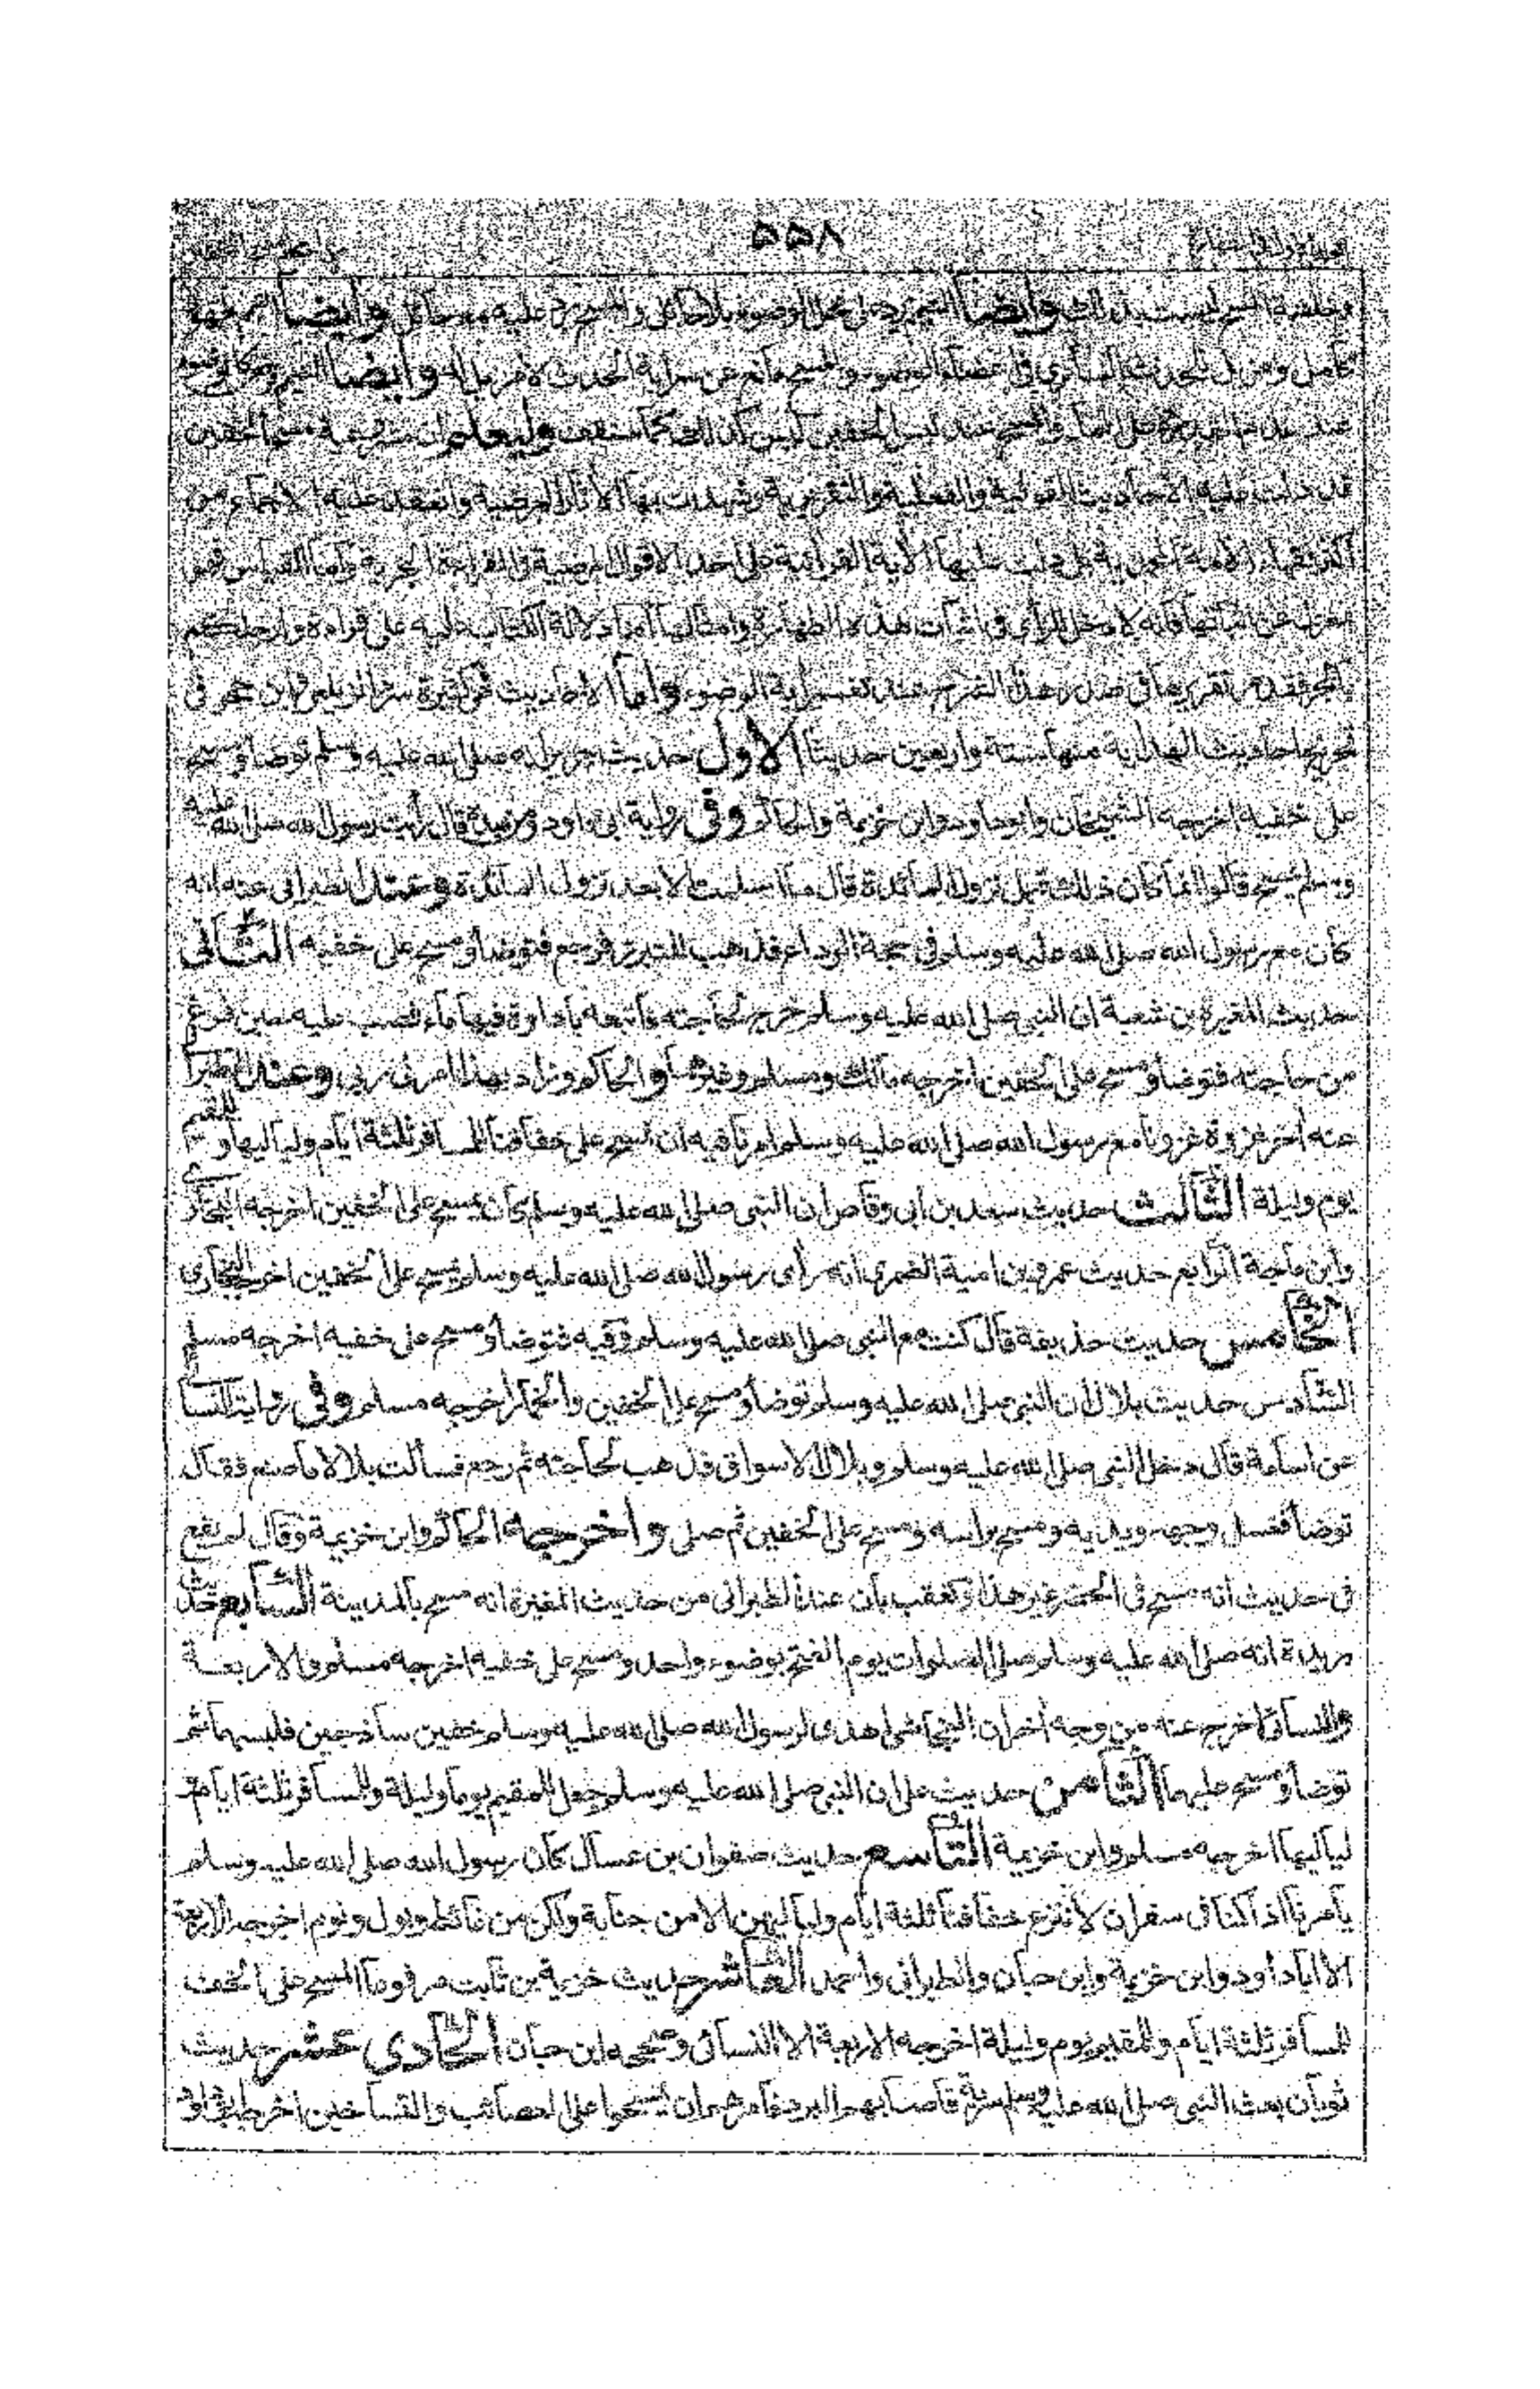 ۵۵۸
وايضا التيمم يرد على محل الوضوء بلا حائل والمسح يرد عليه مع حائل وايضا التيمم طهر
كامل ومزيل للحدث الساري في اعضاء الوضوء والمسح مانع عن سراية الحدث لا مزيل له وايضا التيمم
عند عدم القدرة على الماء والمسح عند لبس الخفين ليس كذلك كما ستقف وليعلم ان مشروعية مسح الخفين
قد دلت عليه الاحاديث القولية والفعلية والتقريرية وشهدت بها الآثار المرضية وانعقد عليه الاجماع من
اكثر فقهاء الامة المحمدية بل دلت عليها الآية القرآنية على احد الاقوال المرضية في القراءة الجرية واما القياس فهو
بمعزل عن اثباتها فانه لا دخل للرأي في اثبات هذه الطهارة وامثالها اما دلالة الكتاب عليه على قراءة وارجلكم
بالجر فقد مر تقريرها في صدر هذا الشرح عند تفسير اية الوضوء واما الاحاديث فكثيرة سرد الزيلعي وابن حجر في
تخريج احاديث الهداية منها ستة واربعين حديثا الاول حديث جرير انه صلى الله عليه وسلم توضأ ومسح
على خفيه اخرجه الشيخان وابوداود وابن خزيمة والحاكم وفي رواية ابي داود ومن بعده قال رأيت رسول الله صلى الله عليه
وسلم يمسح قالوا انما كان ذلك قبل نزول المائدة قال ما اسلمت الا بعد نزول المائدة وعند الطبراني عنه انه
كان مع رسول الله صلى الله عليه وسلم في حجة الوداع فذهب للتبرز فرجع فتوضأ ومسح على خفيه الثاني
حديث المغيرة بن شعبة ان النبي صلى الله عليه وسلم خرج لحاجته واتبعه باداوة فيها ماء فصب عليه حين فرغ
من حاجته فتوضأ ومسح على الخفين اخرجه مالك ومسلم وغيرهما والحاكم وزاد بهذا امرني ربي وعند الطبراني
عنه آخر غزوة غزونا مع رسول الله صلى الله عليه وسلم امرنا فيه ان نمسح على خفافنا للمسافر ثلثة ايام ولياليها وللمقيم
يوم وليلة الثالث حديث سعد بن ابي وقاص ان النبي صلى الله عليه وسلم كان يمسح على الخفين اخرجه البخاري
وابن ماجة الرابع حديث عمرو بن امية الضمري انه رأى رسول الله صلى الله عليه وسلم يمسح على الخفين اخرجه البخاري
الخامس حديث حذيفة قال كنت مع النبي صلى الله عليه وسلم وفيه فتوضأ ومسح على خفيه اخرجه مسلم
السادس حديث بلال ان النبي صلى الله عليه وسلم توضأ ومسح على الخفين والخمار اخرجه مسلم وفي رواية النسائي
عن اسامة قال دخل النبي صلى الله عليه وسلم وبلال الاسواق فذهب لحاجته ثم رجع فسألت بلالا ما صنع فقال
توضأ فغسل وجهه ويديه ومسح برأسه ومسح على الخفين ثم صلى واخرجه الحاكم وابن خزيمة وقال لم يقع
في حديث انه مسح في الحضر غير هذا وتعقب بأن عند الطبراني من حديث المغيرة انه مسح بالمدينة السابع حديث
بريدة انه صلى الله عليه وسلم صلى الصلوات يوم الفتح بوضوء واحد ومسح على خفيه اخرجه مسلم والاربعة
والنسائي اخرج عنه من وجه آخر ان النجاشي اهدى لرسول الله صلى الله عليه وسلم خفين ساذجين فلبسهما ثم
توضأ ومسح عليهما الثامن حديث علي ان النبي صلى الله عليه وسلم جعل للمقيم يوما وليلة وللمسافر ثلثة ايام و
لياليها اخرجه مسلم وابن خزيمة التاسع حديث صفوان بن عسال كان رسول الله صلى الله عليه وسلم
يأمرنا اذا كنا في سفر ان لا ننزع خفافنا ثلثة ايام ولياليهن الا من جنابة ولكن من غائط وبول ونوم اخرجه الاربعة
الا ابا داود وابن خزيمة وابن حبان والطبراني واحمد العاشر حديث خزيمة بن ثابت مرفوعا المسح على الخف
للمسافر ثلثة ايام وللمقيم يوم وليلة اخرجه الاربعة الا النسائي وصححه ابن حبان الحادي عشر حديث
ثوبان بعث النبي صلى الله عليه وسلم سرية فاصابهم البرد فأمرهم ان يمسحوا على العصائب والتساخين اخرجه ابوداود